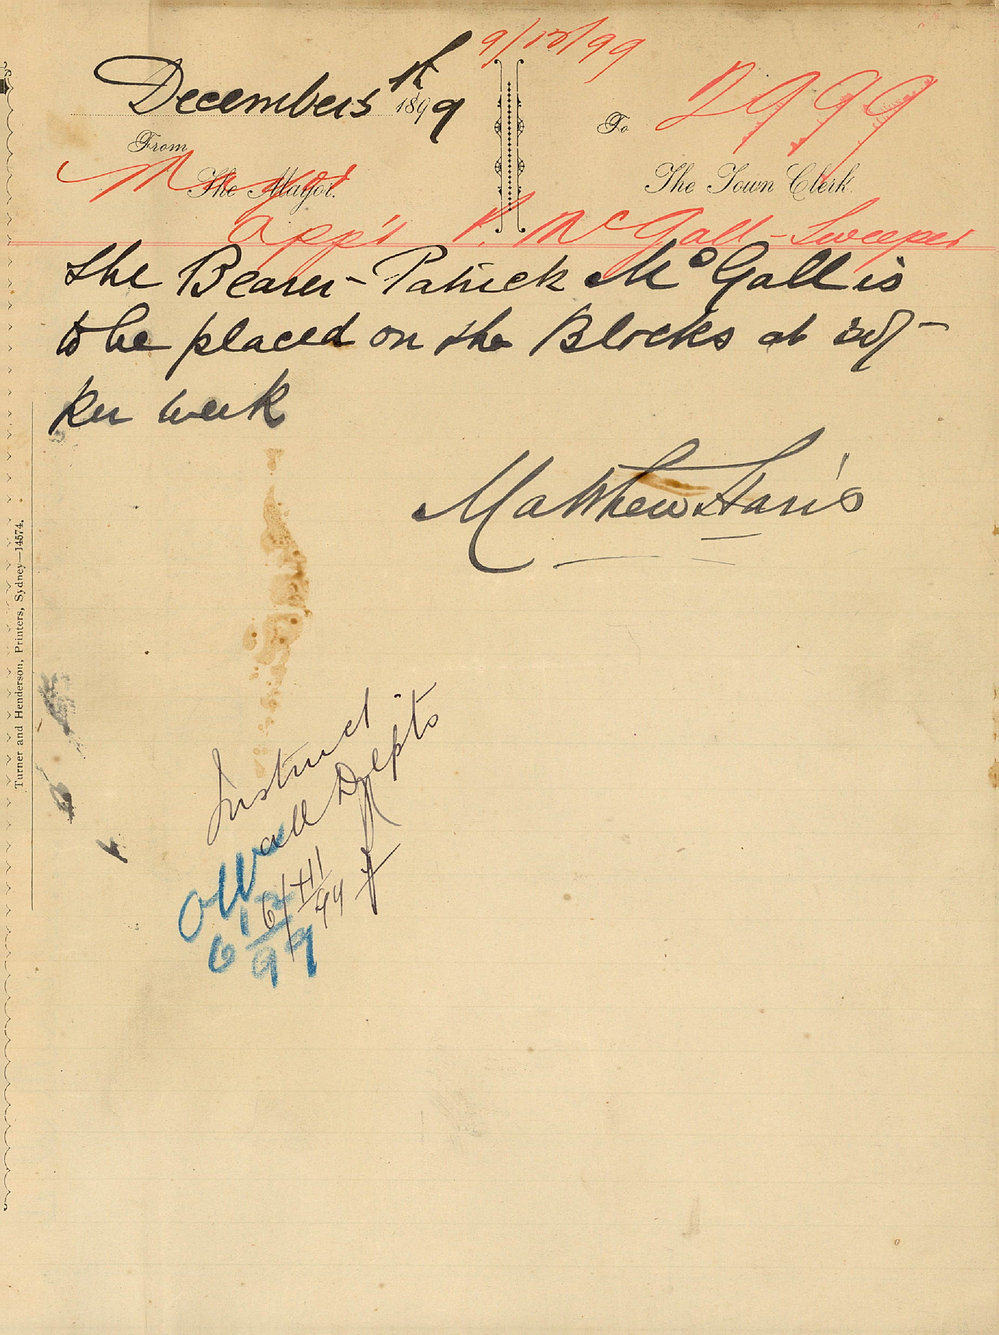 9/12/99
December 5th 1899
To 2999
From
The Mayor.
The Town Clerk.
Mayor
App't P. McGall - Sweeper
The Bearer - Patrick McGall is
to be placed on the Blocks at 20/-
Per week
Matthew Harris
Instruct
all Depts
6/XII/99
6/12/99
Turner and Henderson, Printers, Sydney—14574.